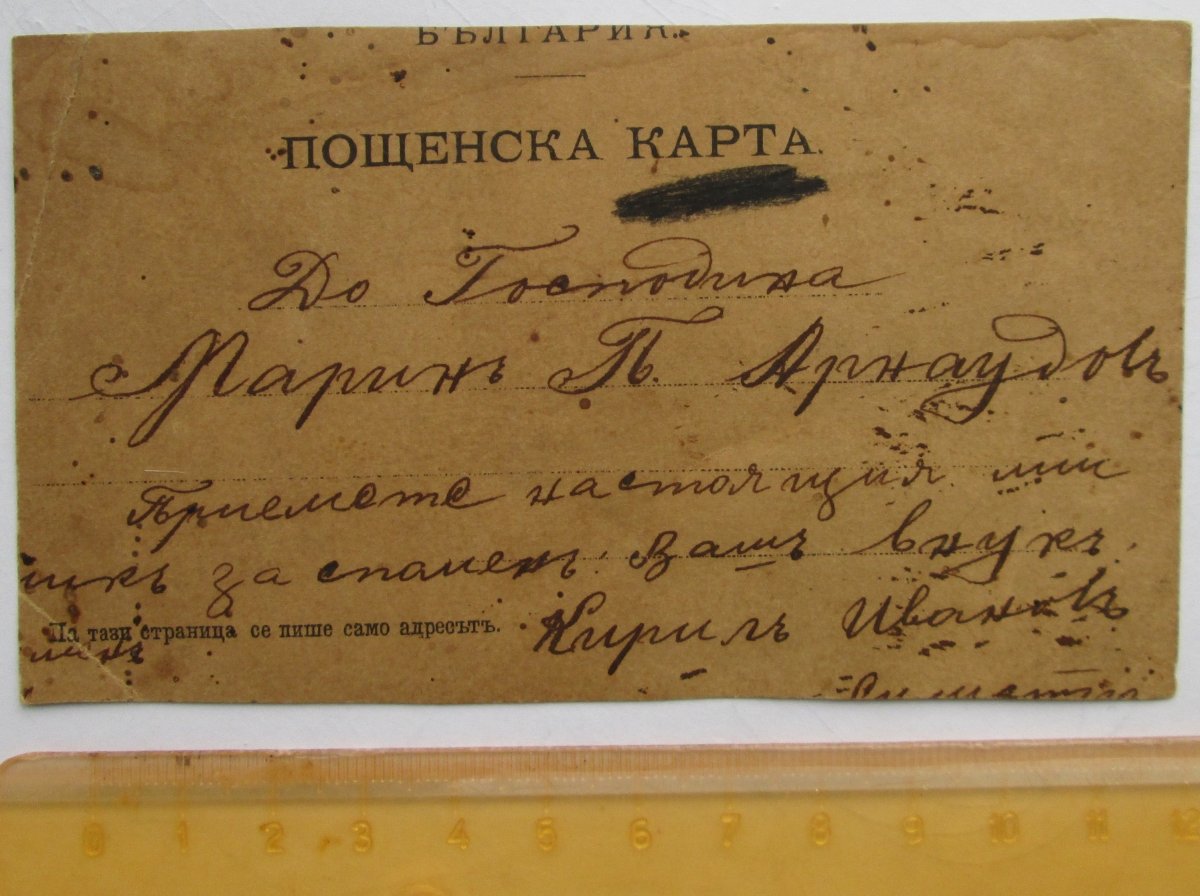 БЪЛГАРИЯ.
ПОЩЕНСКА КАРТА.
До Господина
Маринъ П. Арнаудовъ
Приемете настоящия ми
за споменъ. Вашъ внукъ.
На тази страница се пише само адресътъ.
Кирилъ Ивановъ
0 1 2 3 4 5 6 7 8 9 10 11 12